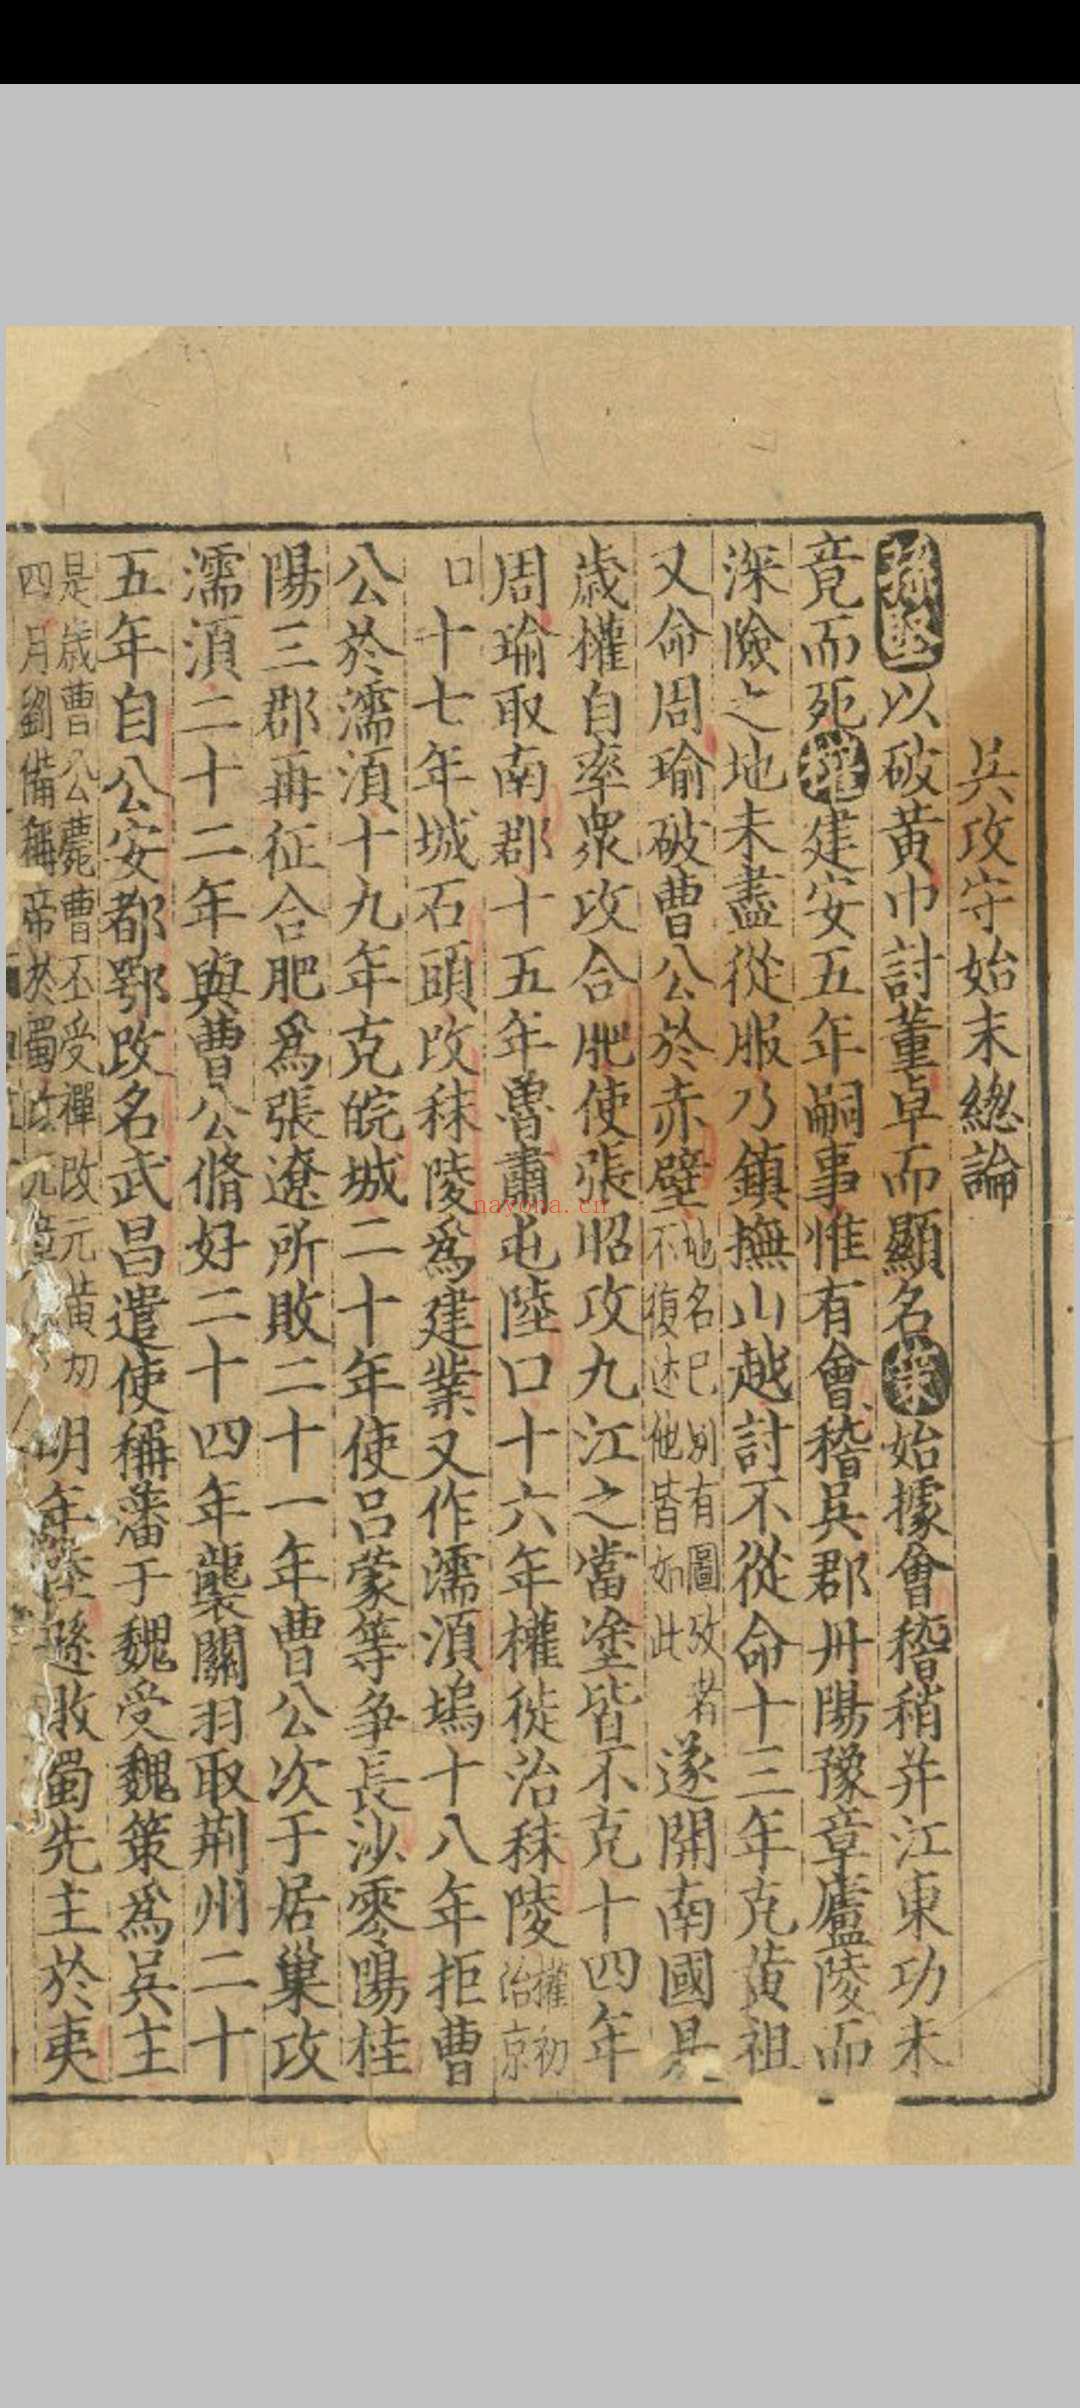 吳攻守始末總論
孫堅以破黃巾討董卓而顯名策始據會稽稍并江東功未
竟而死權建安五年嗣事惟有會稽吳郡丹陽豫章廬陵而
深險之地未盡從服乃鎮撫山越討不從命十三年克黃祖
又命周瑜破曹公於赤壁地名已別有圖攷若不復述他皆如此遂開南國是
歲權自率衆攻合肥使張昭攻九江之當塗皆不克十四年
周瑜取南郡十五年魯肅屯陸口十六年權徙治秣陵權初治京
口十七年城石頭改秣陵爲建業又作濡湏塢十八年拒曹
公於濡湏十九年克皖城二十年使吕蒙等爭長沙零陽桂
陽三郡再征合肥爲張遼所敗二十一年曹公次于居巢攻
濡湏二十二年與曹公脩好二十四年襲關羽取荆州二十
五年自公安都鄂改名武昌遣使稱藩于魏受魏策爲吳主
是歲曹公薨曹丕受禪改元黃初四月劉備稱帝於蜀改元章明年陸遜敗蜀先主於夷
nayona.cn